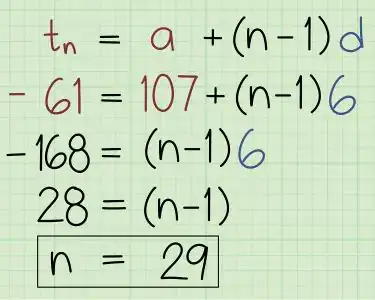 tₙ = a + (n - 1) d
- 61 = 107 + (n-1) 6
- 168 = (n-1) 6
28 = (n-1)
n = 29